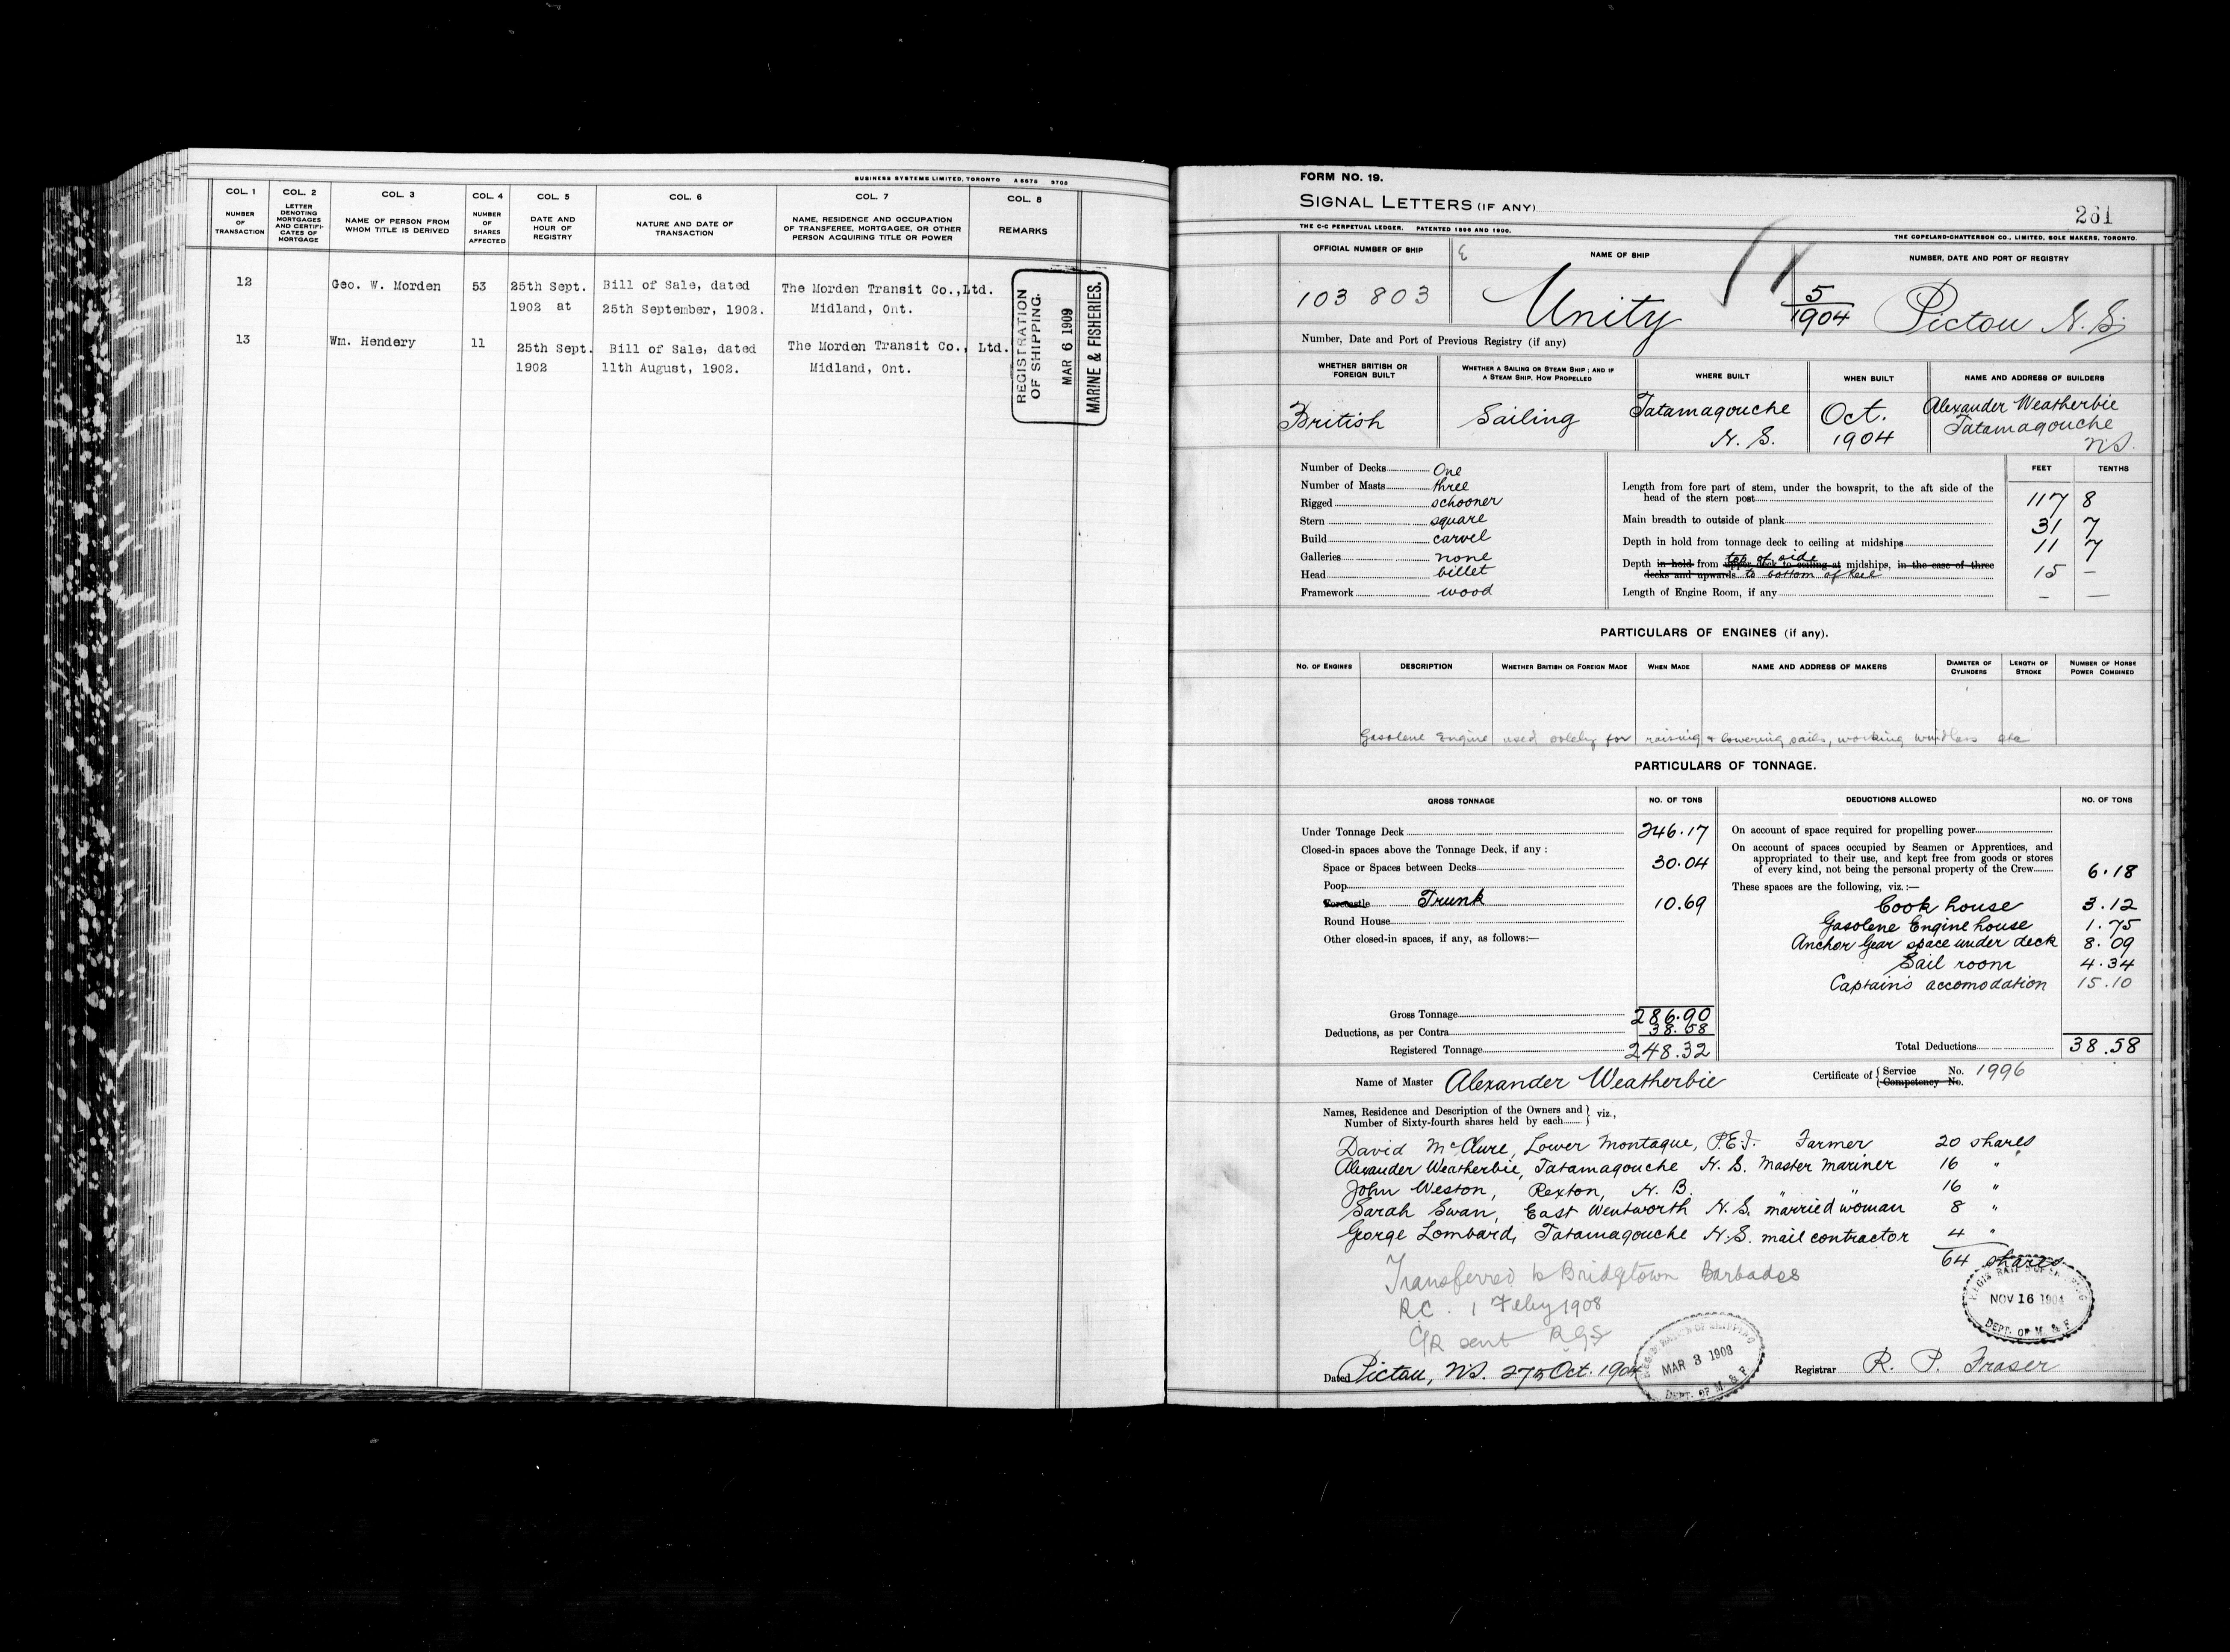 BUSINESS SYSTEMS LIMITED, TORONTO A 8675 3708
COL. 1 COL. 2 COL. 3 COL. 4 COL. 5 COL. 6 COL. 7 COL. 8
NUMBER OF TRANSACTION
LETTER DENOTING MORTGAGES AND CERTIFI-CATES OF MORTGAGE
NAME OF PERSON FROM WHOM TITLE IS DERIVED
NUMBER OF SHARES AFFECTED
DATE AND HOUR OF REGISTRY
NATURE AND DATE OF TRANSACTION
NAME, RESIDENCE AND OCCUPATION OF TRANSFEREE, MORTGAGEE, OR OTHER PERSON ACQUIRING TITLE OR POWER
REMARKS
12 Geo. W. Morden 53 25th Sept. Bill of Sale, dated The Morden Transit Co.,Ltd.
1902 at 25th September, 1902. Midland, Ont.
13 Wm. Hendery 11 25th Sept. Bill of Sale, dated The Morden Transit Co., Ltd.
1902 11th August, 1902. Midland, Ont.
REGISTRATION
OF SHIPPING.
MAR 6 1909
MARINE & FISHERIES.
FORM NO. 19.
SIGNAL LETTERS (IF ANY)
261
THE C-C PERPETUAL LEDGER. PATENTED 1896 AND 1900.
THE COPELAND-CHATTERSON CO., LIMITED, SOLE MAKERS, TORONTO.
OFFICIAL NUMBER OF SHIP NAME OF SHIP NUMBER, DATE AND PORT OF REGISTRY
103 803 Unity 5/1904 Pictou N.S.
Number, Date and Port of Previous Registry (if any)
WHETHER BRITISH OR FOREIGN BUILT
WHETHER A SAILING OR STEAM SHIP; AND IF A STEAM SHIP, HOW PROPELLED
WHERE BUILT
WHEN BUILT
NAME AND ADDRESS OF BUILDERS
British Sailing Tatamagouche N. S. Oct. 1904 Alexander Weatherbie
Tatamagouche
N.S.
FEET TENTHS
Number of Decks One
Number of Masts three
Rigged schooner
Stern square
Build carvel
Galleries none
Head billet
Framework wood
Length from fore part of stem, under the bowsprit, to the aft side of the
head of the stern post 117 8
Main breadth to outside of plank 31 7
Depth in hold from tonnage deck to ceiling at midships 11 7
top of side
Depth in hold from upper deck to ceiling at midships, in the case of three
decks and upwards to bottom of keel 15 –
Length of Engine Room, if any – –
PARTICULARS OF ENGINES (if any).
NO. OF ENGINES DESCRIPTION WHETHER BRITISH OR FOREIGN MADE WHEN MADE NAME AND ADDRESS OF MAKERS DIAMETER OF CYLINDERS LENGTH OF STROKE NUMBER OF HORSE POWER COMBINED
Gasolene Engine used solely for raising & lowering sails, working windlass etc
PARTICULARS OF TONNAGE.
GROSS TONNAGE NO. OF TONS DEDUCTIONS ALLOWED NO. OF TONS
Under Tonnage Deck 246.17
Closed-in spaces above the Tonnage Deck, if any :
Space or Spaces between Decks 30.04
Poop
Forecastle Trunk 10.69
Round House
Other closed-in spaces, if any, as follows:—
Gross Tonnage 286.90
Deductions, as per Contra 38.58
Registered Tonnage 248.32
On account of space required for propelling power
On account of spaces occupied by Seamen or Apprentices, and
appropriated to their use, and kept free from goods or stores
of every kind, not being the personal property of the Crew 6.18
These spaces are the following, viz.:—
Cook house 3.12
Gasolene Engine house 1.75
Anchor Gear space under deck 8.09
Sail room 4.34
Captain's accomodation 15.10
Total Deductions 38.58
Name of Master Alexander Weatherbie
Certificate of Service No. 1996
Competency No.
Names, Residence and Description of the Owners and
Number of Sixty-fourth shares held by each viz.,
David McClure, Lower Montague, P.E.I. Farmer 20 shares
Alexander Weatherbie, Tatamagouche N. S. Master Mariner 16 "
John Weston, Rexton, N. B. " " 16 "
Sarah Swan, East Wentworth N. S. married woman 8 "
George Lombard, Tatamagouche N.S. mail contractor 4 "
64 shares
Transferred to Bridgetown Barbados
R.C. 1 Feby 1908
C/R sent RGS
REGISTRATION OF SHIPPING
NOV 16 1904
DEPT. OF M. & F.
REGISTRATION OF SHIPPING
MAR 3 1908
DEPT. OF M & F
Dated Pictou, N.S. 27th Oct. 1904
Registrar R. P. Fraser